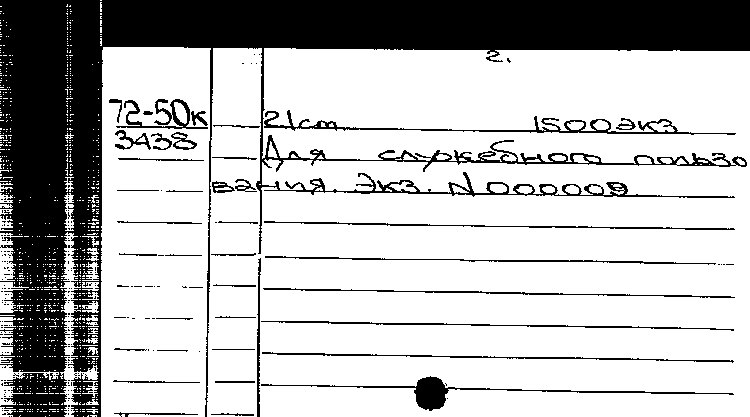 2.
72-50к 21cm 1500экз
3438 Для служебного пользо
вания. Экз. N 000009